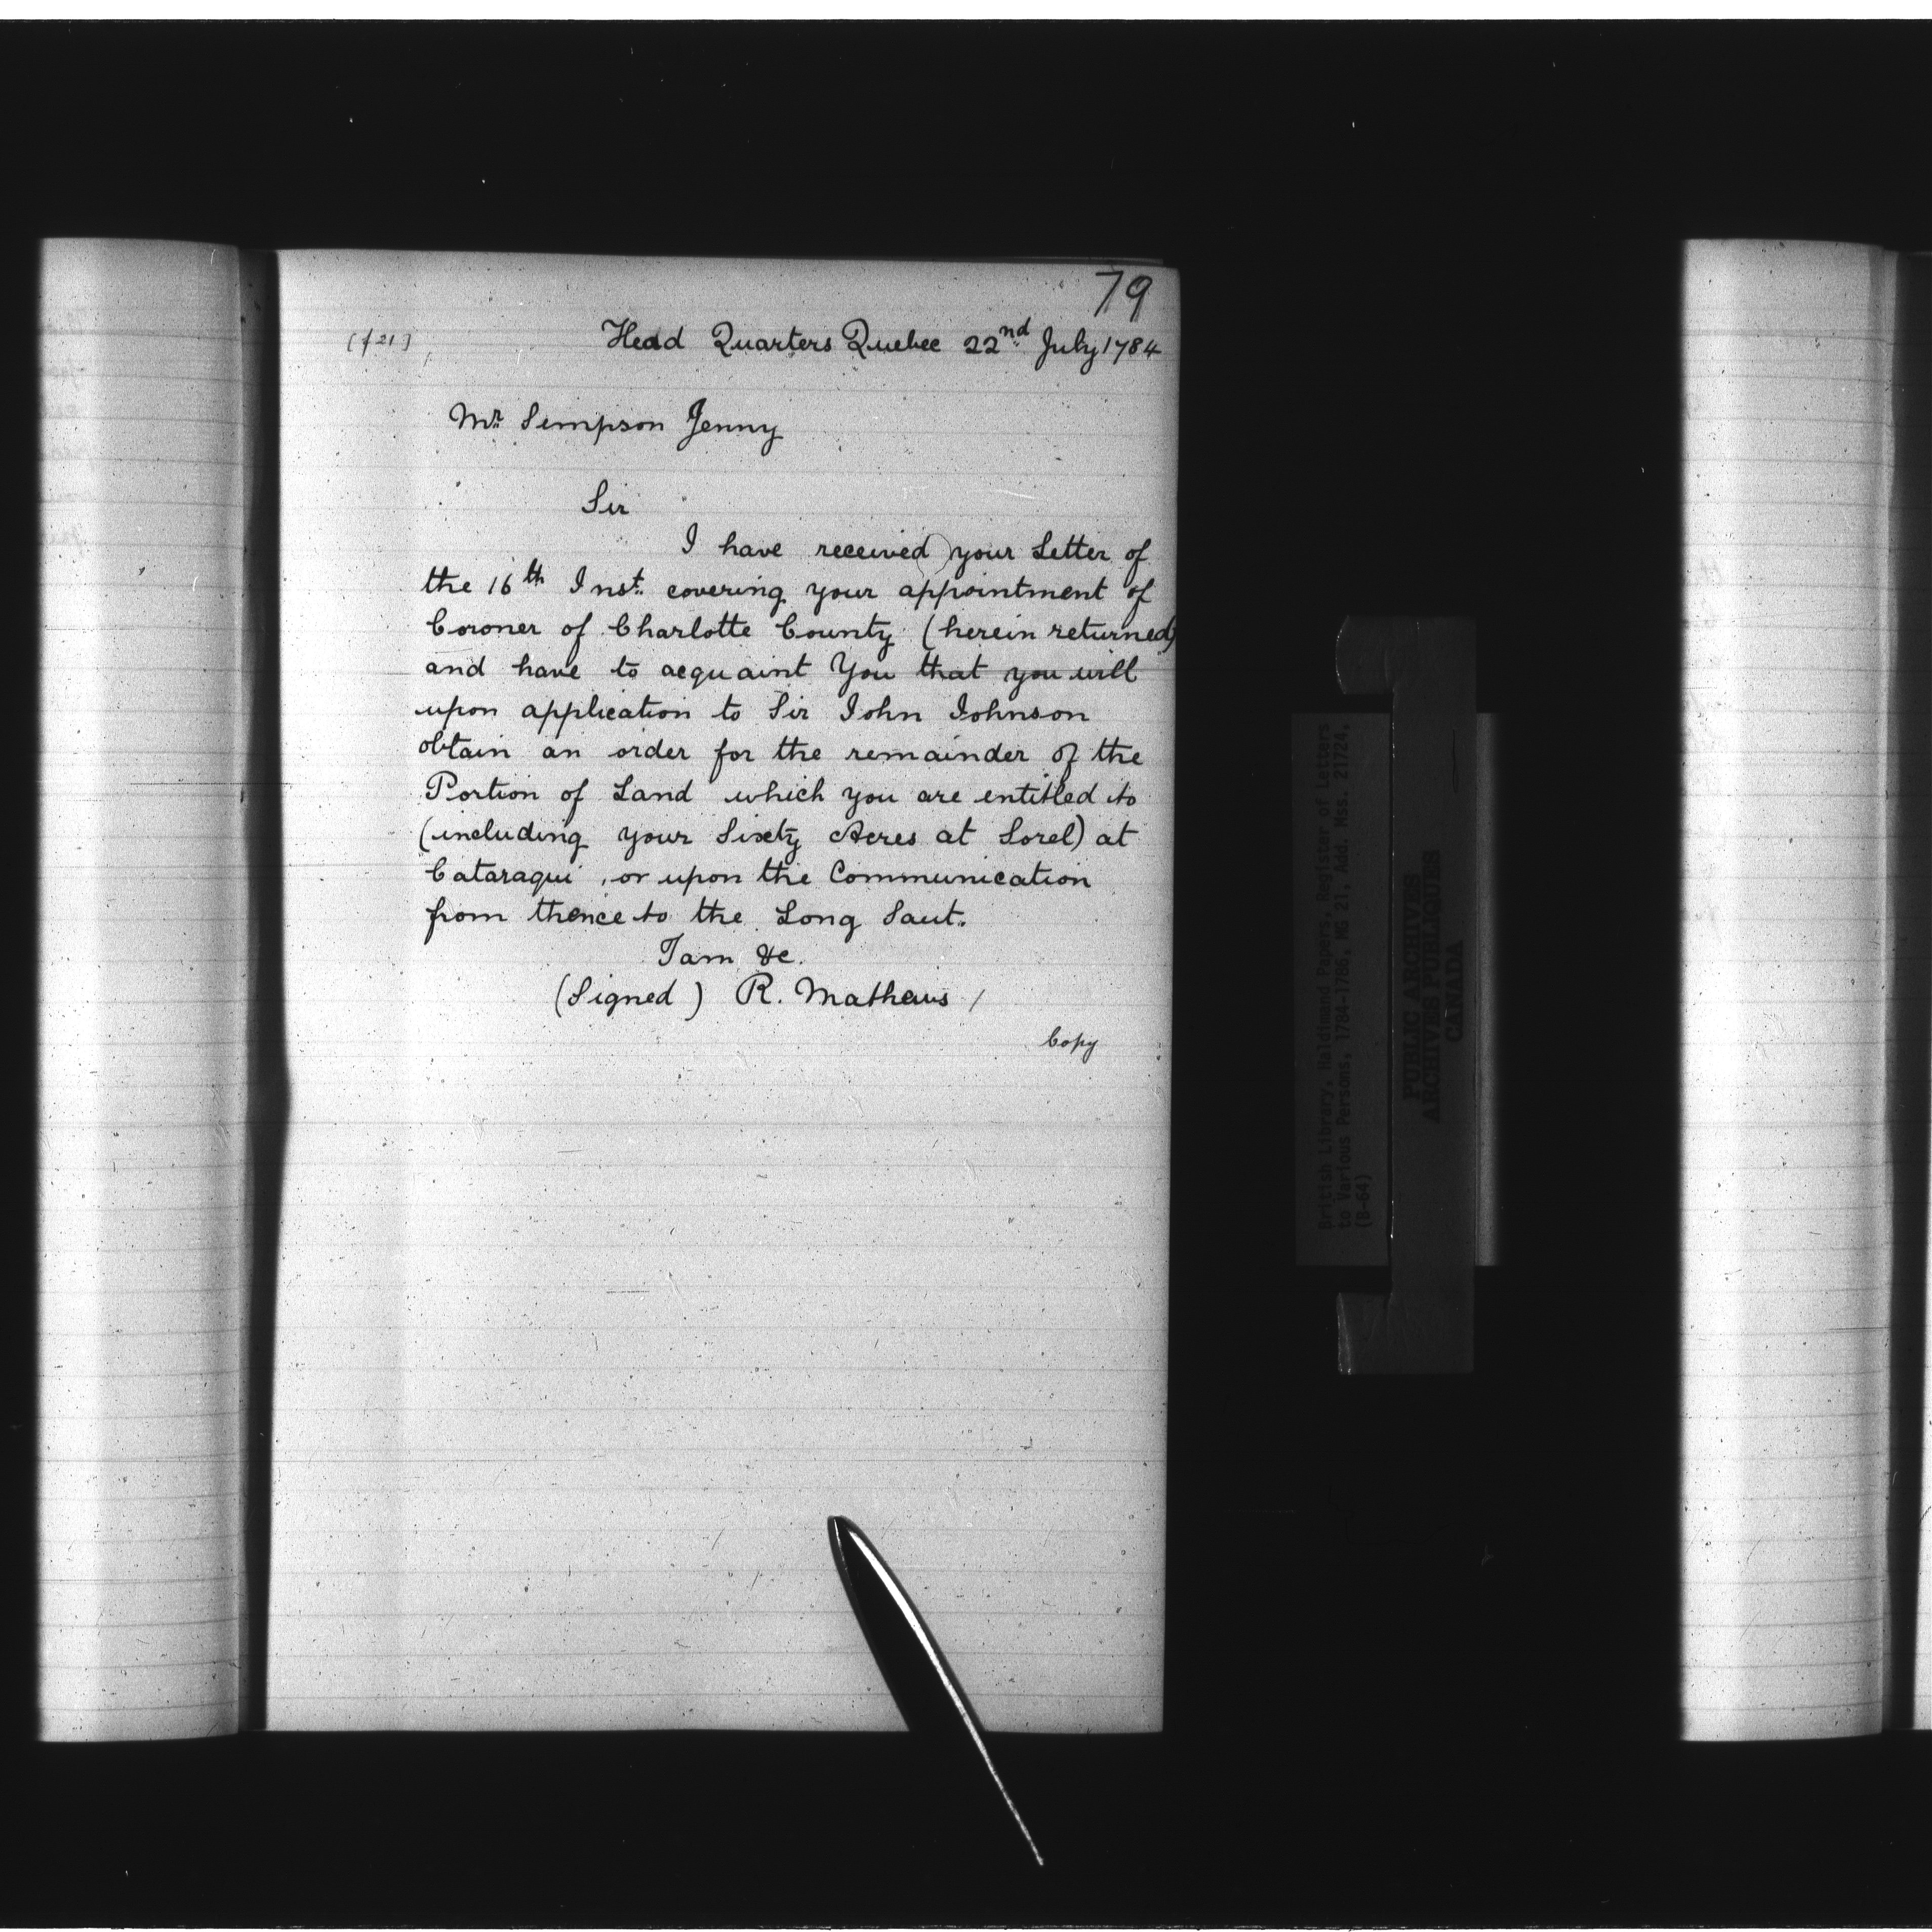 79
(f 21)
Head Quarters Quebec 22nd July 1784
Mr Simpson Jenny
Sir
I have received your Letter of
the 16th Inst. covering your appointment of
Coroner of Charlotte County (herein returned)
and have to acquaint You that you will
upon application to Sir John Johnson
obtain an order for the remainder of the
Portion of Land which you are entitled to
(including your Sixty Acres at Sorel) at
Cataraqui, or upon the Communication
from thence to the Long Saut.
I am &c.
(Signed) R. Mathews /
Copy
British Library, Haldimand Papers, Register of Letters
to Various Persons, 1784-1786, MG 21, Add. Mss. 21724,
(B-64)
PUBLIC ARCHIVES
ARCHIVES PUBLIQUES
CANADA